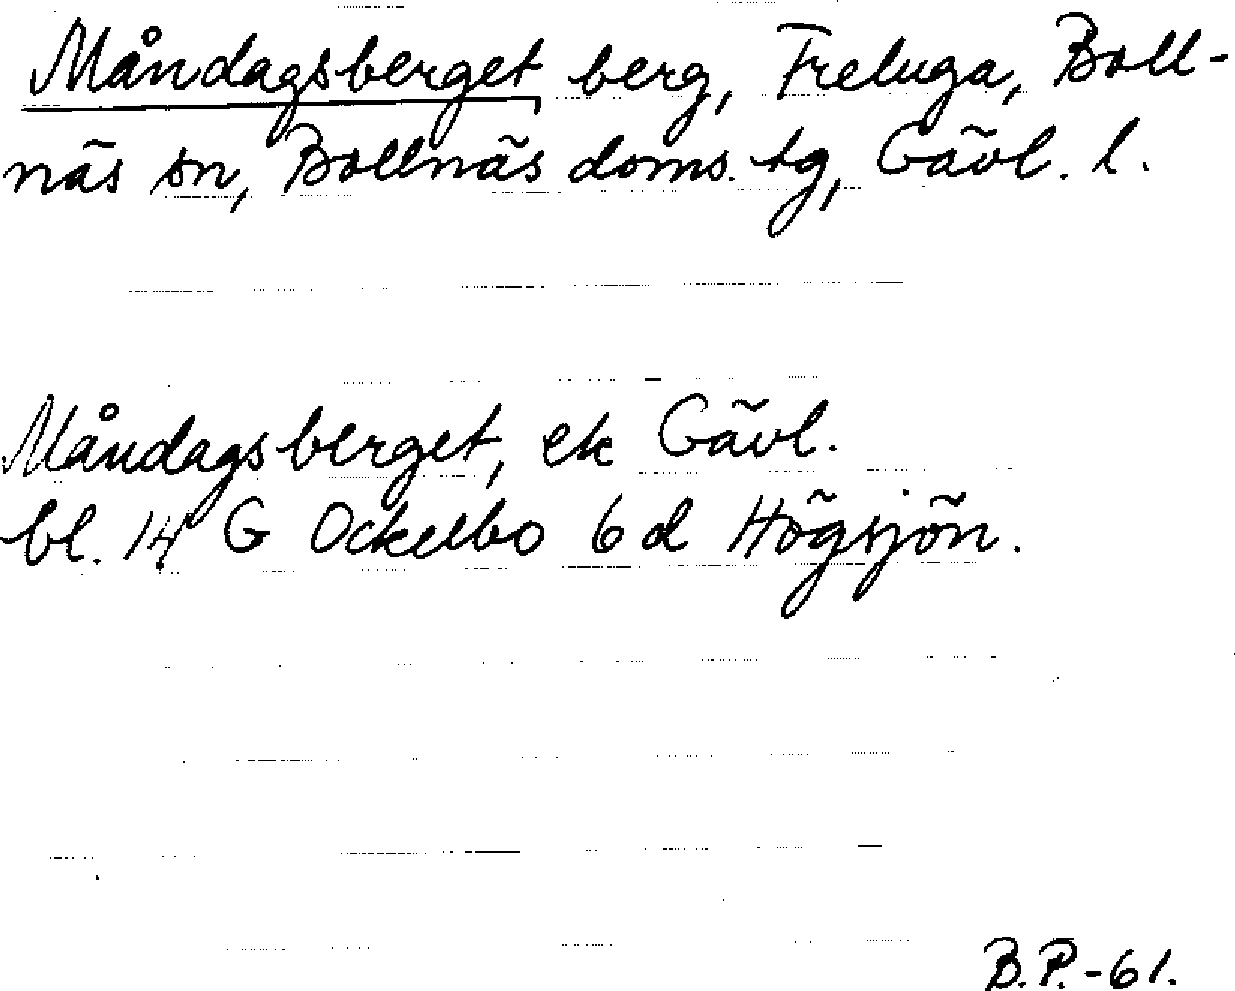 Måndagsberget berg, Freluga, Boll-
näs sn, Bollnäs doms. tg, Gävl. l.
Måndagsberget, ek Gävl.
bl. 14 G Ockelbo 6d Högsjön.
B.P.-61.